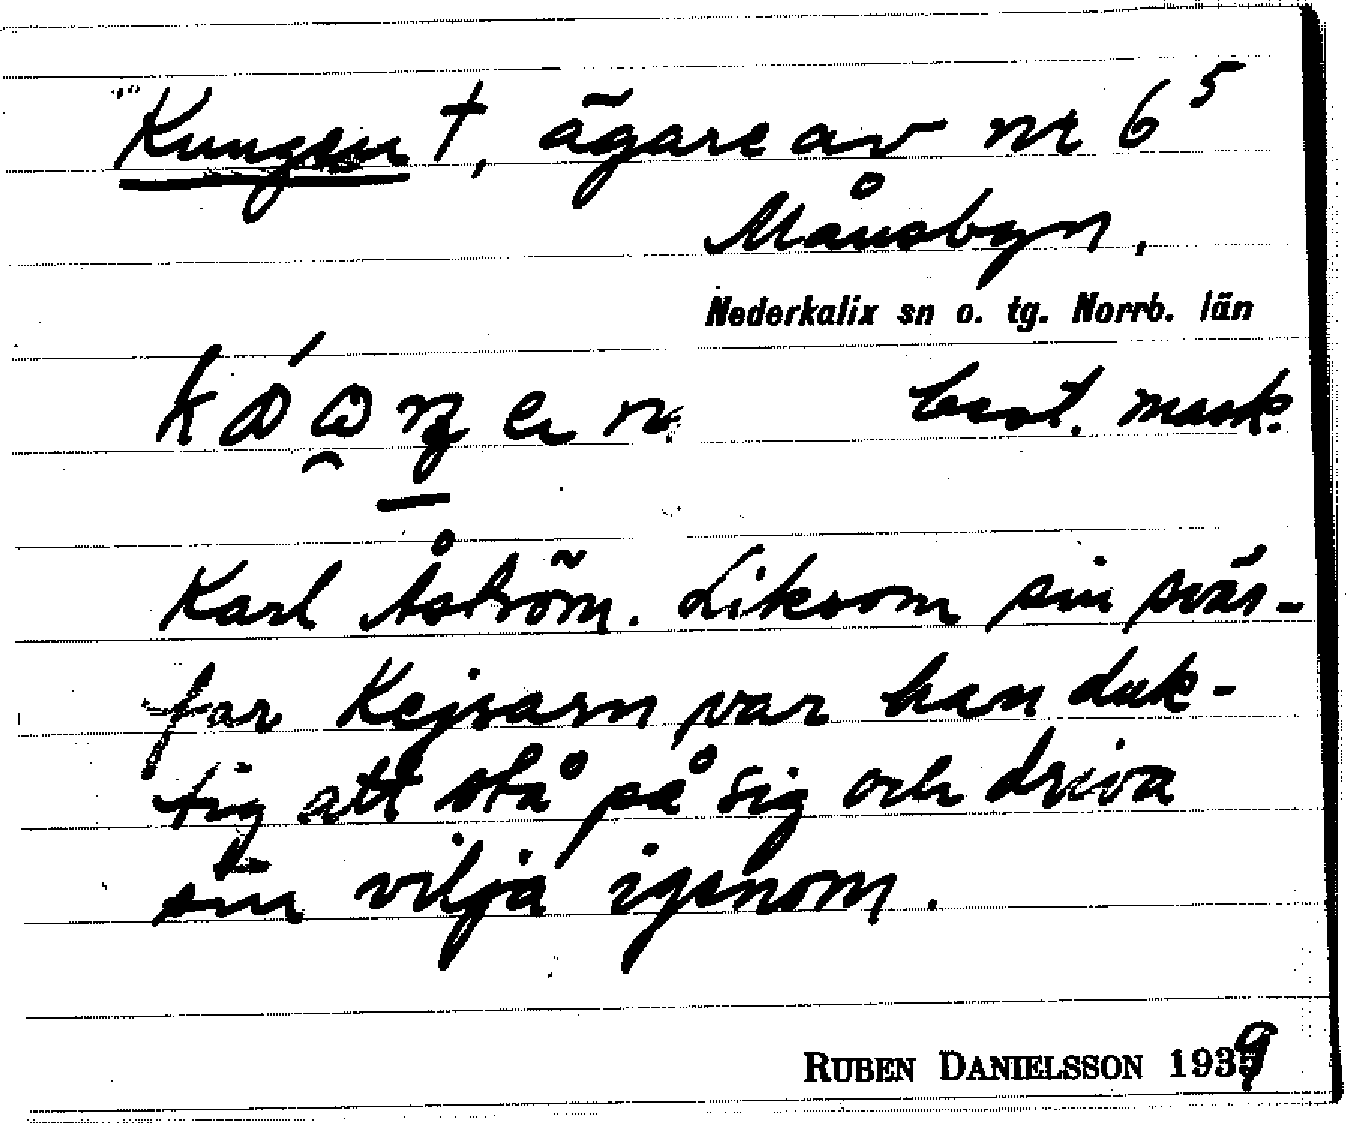 Kungen †, ägare av nr 6⁵
Månsbyn,
Nederkalix sn o. tg. Norrb. län
best. mask.
Karl Åström. Liksom sin svär-
far Kejsarn var han duk-
tig att stå på sig och driva
sin vilja igenom.
RUBEN DANIELSSON 1939